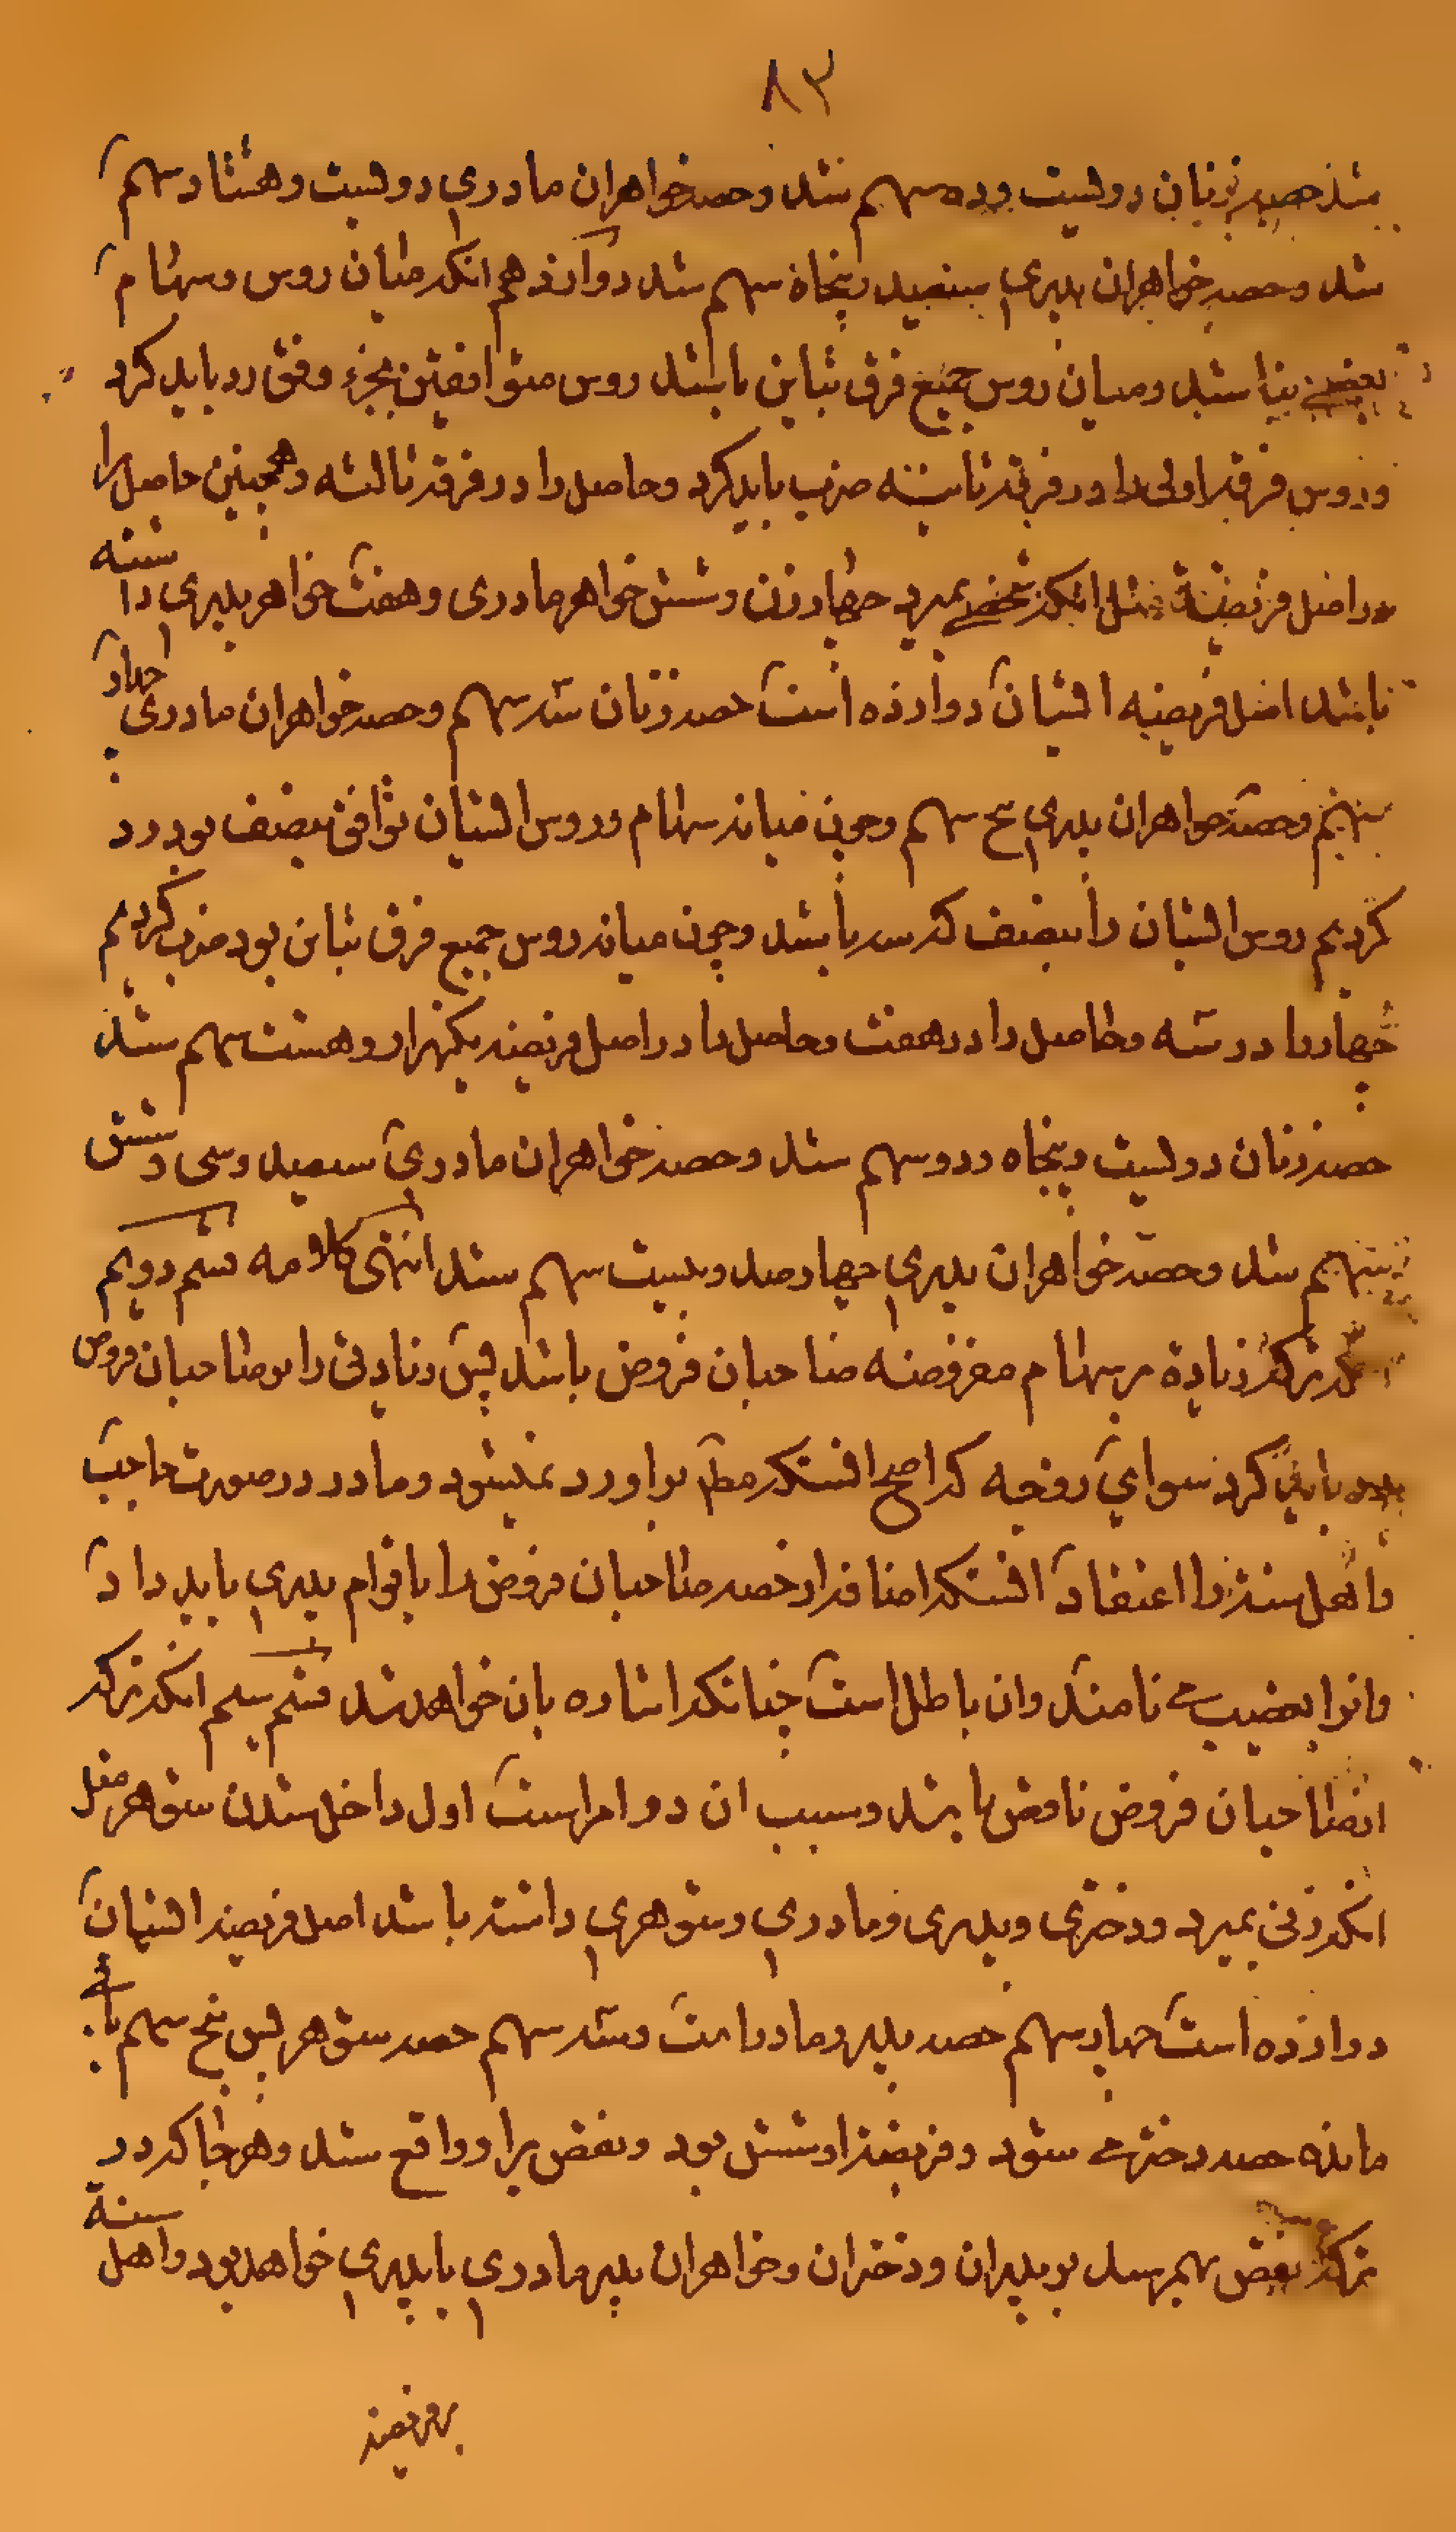 ۸۳
شد حصه زنان دولیست و ده سهم شد و حصه خواهران مادری دولیست و هشتاد سهم
شد و حصه خواهران پدری سیصد و پنجاه سهم شد دوازدهم انکه میان روس و سهام
بعضی بناشد و میان روس جمیع فرق تباین باشد روس متوافقین بجزء وفق رد باید کرد
و روس فرقه اولی را در فرقه ثانیه ضرب باید کرد و حاصل را در فرقه ثالثه و همچنین حاصل را
در اصل فریضة مثل انکه شخصے بمیرد چهار زن و شش خواهر مادری و هفت خواهر پدری داشته
باشد اصل فریضه ایشان دوازده است حصه زنان سه سهم و حصه خواهران مادری چهار
سهم و حصه خواهران پدری پنج سهم و چون میانه سهام و روس ایشان توافق بنصف بود رد
کردیم روس ایشان را بنصف که سه باشد و چون میانه روس جمیع فرق تباین بود ضرب کردیم
چهار را در سه و حاصل را در هفت و حاصل را در اصل فریضه یکهزار و هشت سهم شد
حصه زنان دولیست و پنجاه و دو سهم شد و حصه خواهران مادری سیصد و سی و شش
سهم شد و حصه خواهران پدری چهارصد و بیست سهم شد انتهی کلامه قسم دویم
انکه ترکه زیاده بر سهام مفروضه صاحبان فروض باشد پس زیادتی را بر صاحبان فروض
رد باید کرد سوای زوجه که اصح انستکه مطم براو رد نمیشود و مادر در صورت حاجب
و اهل سنة را اعتقاد انستکه اضافه از حصه صاحبان فروض را باقوام پدری باید داد
و انرا تعصیب مے نامند و ان باطل است چنانکه اشاره بان خواهد شد قسم سیم انکه ترکه
از صاحبان فروض ناقص باشد و سبب ان دو امر است اول داخل شدن شوهر مثل
انکه زنی بمیرد و دختری و پدری و مادری و شوهری داشته باشد اصل فریضه ایشان
دوازده است چهار سهم حصه پدر و مادر است و سه سهم حصه شوهر پس پنج سهم باقے
مانده حصه دختر مے شود و فریضه او شش بود و نقص بر او واقع شد و هر جا که در
ترکه نقص بهم رسد بر پدران و دختران و خواهران پدر مادری یا پدری خواهد بود و اهل سنة
بر فریضه